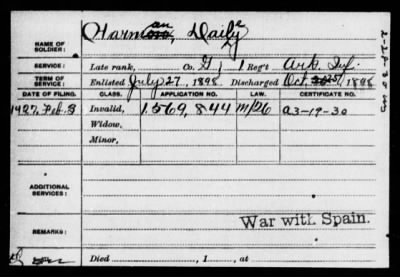 NAME OF SOLDIER: Harmon, Daily
an e
SERVICE: Late rank, Co. G, 1 Reg't Ark. Inf.
TERM OF SERVICE: Enlisted July 27, 1898, Discharged Oct. 25, 1898
DATE OF FILING. CLASS. APPLICATION NO. LAW. CERTIFICATE NO.
1927. Feb. 3 Invalid, 1.569,844 m/26 a3-19-30
Widow,
Minor,
ADDITIONAL SERVICES:
War with Spain.
REMARKS:
Died , 1 , at